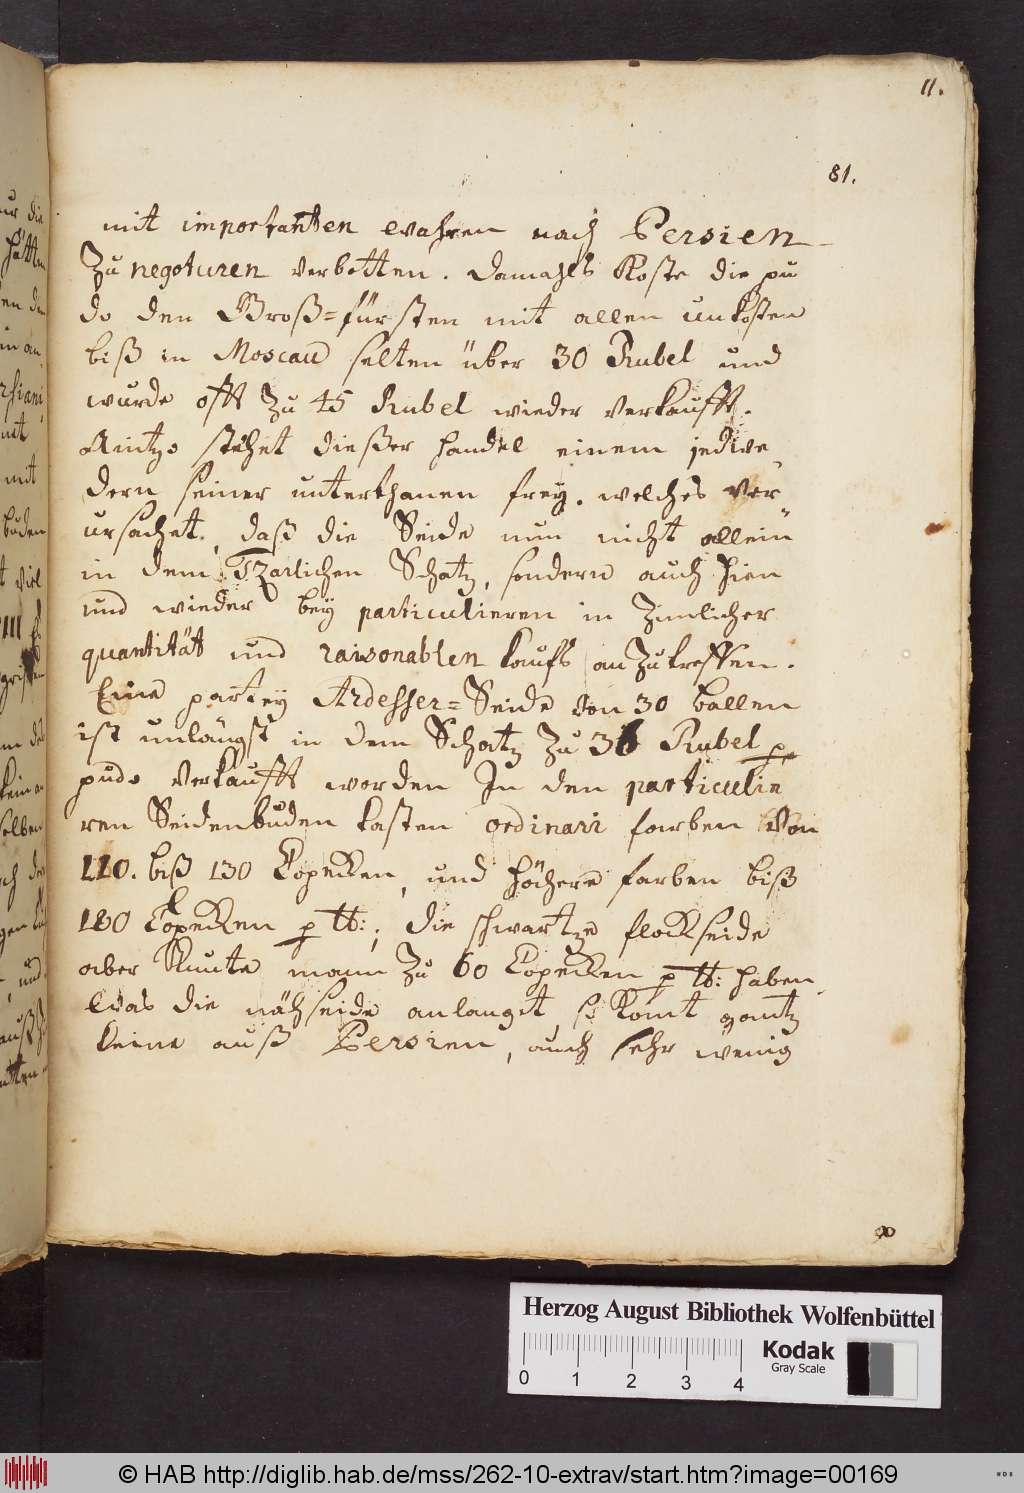 11.
81.
mit importanten wahren nach Persien
Zu negotiren verbotten. Damahls Koste die pu
do den Groß=fürsten mit allen unkosten
biß in Moscau selten über 30 Rubel und
wurde offt Zu 45 Rubel wieder verkaufft.
Anitzo stehet dießer handel einem jedwe
dern seiner unterthanen frey. welches ver
ursachet, daß die Seide nun nicht allein
in dem Tzarlichen Schatz, sondern auch hien
und wieder bey particulieren in Zimlicher
quantität und raisonablen kaufs anZutreffen.
Eine partey Ardesser=Seide von 30 ballen
ist unlängst in dem Schatz Zu 36 Rubel p
pudo verkaufft worden In den particulie
ren Seidenbuden kosten ordinari farben von
110. biß 130 Copecken, und höhere farben biß
180 Copecken p lb:, die schwartze flockseide
aber kunte mann Zu 60 Copecken p lb: haben,
Was die nähseide anlanget, so komt gantz
keine auß Persien, auch sehr wenig
Herzog August Bibliothek Wolfenbüttel
Kodak
Gray Scale
0 1 2 3 4
© HAB http://diglib.hab.de/mss/262-10-extrav/start.htm?image=00169